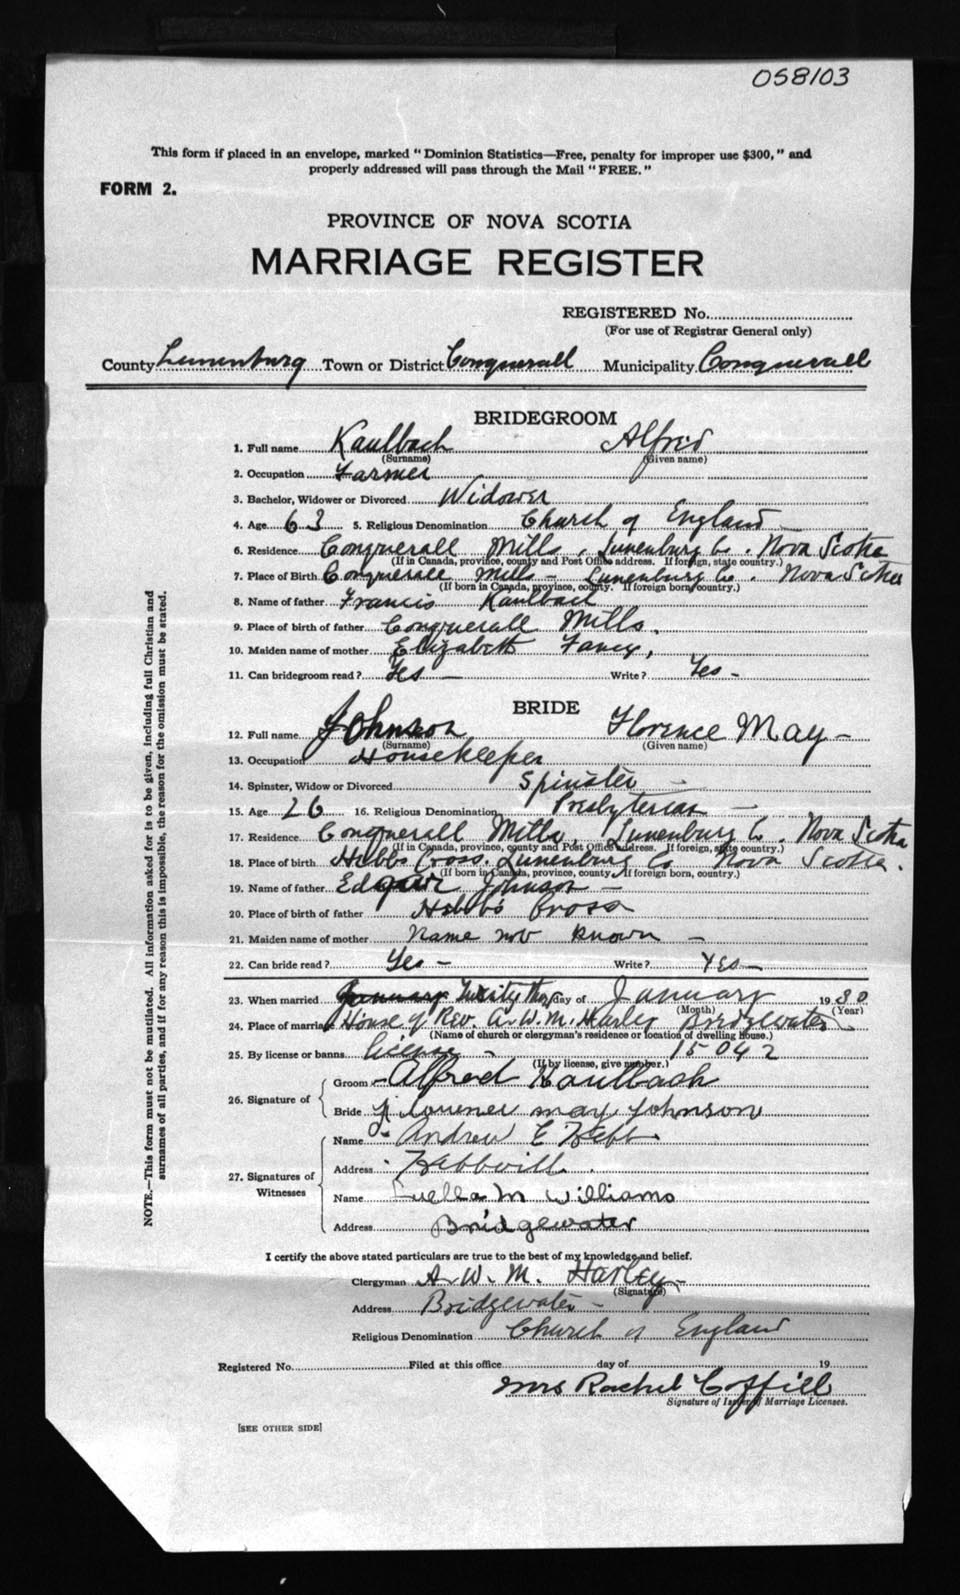 058103
This form if placed in an envelope, marked "Dominion Statistics—Free, penalty for improper use $300," and
properly addressed will pass through the Mail "FREE."
FORM 2.
PROVINCE OF NOVA SCOTIA
MARRIAGE REGISTER
REGISTERED No.
(For use of Registrar General only)
County Lunenburg Town or District Conquerall Municipality Conquerall
BRIDEGROOM
1. Full name Kaulbach Alfred
(Surname) (Given name)
2. Occupation Farmer
3. Bachelor, Widower or Divorced Widower
4. Age 63 5. Religious Denomination Church of England
6. Residence Conquerall Mills, Lunenburg Co. Nova Scotia
(If in Canada, province, county and Post Office address. If foreign, state country.)
7. Place of Birth Conquerall Mills - Lunenburg Co. Nova Scotia
(If born in Canada, province, county. If foreign born, country.)
8. Name of father Francis Kaulbach
9. Place of birth of father Conquerall Mills.
10. Maiden name of mother Elizabeth Fancy,
11. Can bridegroom read? Yes - Write? Yes -
BRIDE
12. Full name Johnson Florence May -
(Surname) (Given name)
13. Occupation Housekeeper
14. Spinster, Widow or Divorced Spinster -
15. Age 26 16. Religious Denomination Presbyterian -
17. Residence Conquerall Mills, Lunenburg Co. Nova Scotia
(If in Canada, province, county and Post Office address. If foreign, state country.)
18. Place of birth Hebbs Cross. Lunenburg Co Nova Scotia.
(If born in Canada, province, county. If foreign born, country.)
19. Name of father Edgar Johnson -
20. Place of birth of father Hebb's Cross
21. Maiden name of mother Name not known -
22. Can bride read? Yes - Write? Yes -
23. When married January day of January 1930
(Month) (Year)
24. Place of marriage House of Rev. A. W. M. Harley Bridgewater
(Name of church or clergyman's residence or location of dwelling house.)
25. By license or banns license - 15042
(If by license, give number.)
26. Signature of
Groom - Alfred Kaulbach
Bride Florence may Johnson
27. Signatures of Witnesses
Name Andrew E Hebb
Address Hebbville.
Name Luella M Williams
Address Bridgewater
I certify the above stated particulars are true to the best of my knowledge and belief.
Clergyman A. W. M. Harley -
(Signature)
Address Bridgewater -
Religious Denomination Church of England
Registered No. Filed at this office day of 19
Mrs Rachel Coffill
Signature of Issuer of Marriage Licenses.
[SEE OTHER SIDE]
NOTE.—This form must not be mutilated. All information asked for is to be given, including full Christian and
surnames of all parties, and if for any reason this is impossible, the reason for the omission must be stated.